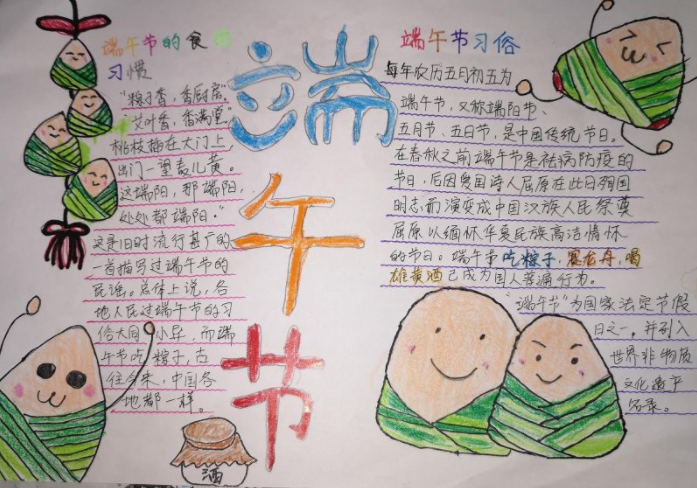 端午节的食
习惯
"粽子香,香厨房。
艾叶香,香满堂。
桃枝插在大门上,
出门一望麦儿黄。
这端阳,那端阳,
处处都端阳。"
这是旧时流行甚广的
一首描写过端午节的
民谣。总体上说,各
地人民过端午节的习
俗大同小异,而端
午节吃粽子,古
往今来,中国各
地都一样。
端
午
节
酒
端午节习俗
每年农历五月初五为
端午节,又称端阳节、
五月节、五日节,是中国传统节日,
在春秋之前端午节是祛病防疫的
节日,后因爱国诗人屈原在此日殉国
明志而演变成中国汉族人民祭奠
屈原以缅怀华夏民族高洁情怀
的节日。端午车吃粽子,赛龙舟,喝
雄黄酒已成为国人普通行为。
"端午节"为国家法定节假
日之一,并列入
世界非物质
文化遗产
名录。